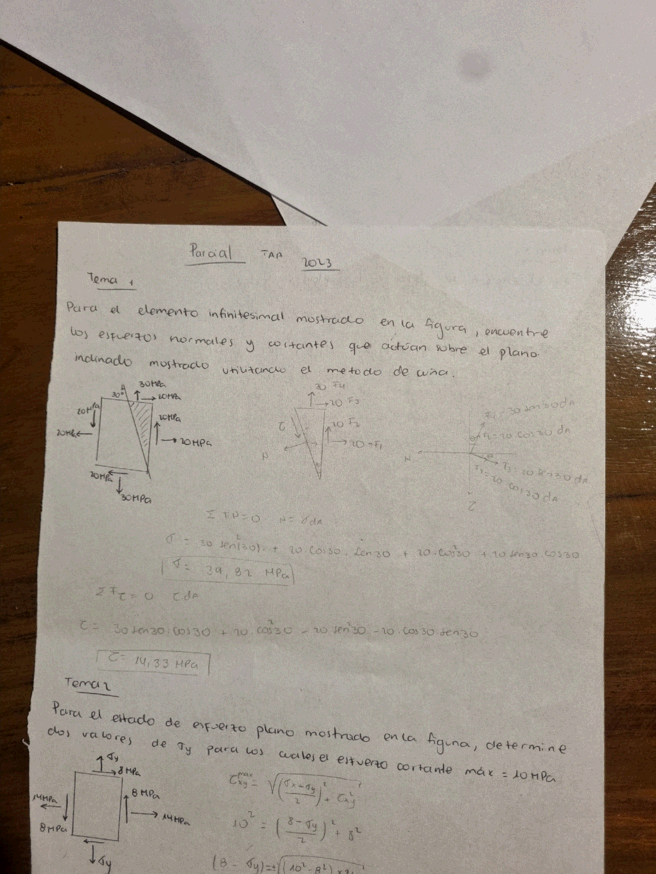 Parcial TAR 2023
Tema 1
Para el elemento infinitesimal mostrado en la figura, encuentre
los esfuerzos normales y cortantes que actúan sobre el plano
inclinado mostrado utilizando el metodo de cuña.
A 30MPa
30° 20MPa
20MPa 20MPa
20MPa 20MPa
20MPa
30MPa
30 F4
20 F3
20 F2
τ
20 F1
N
30 sen30 dA
20 cos30 dA
20 sen30 dA
20 cos30 dA
N
τ
Σ FN=0 N=σdA
σ = 20 sen²(30) + 20 cos30 . sen30 + 30 . cos²30 + 20 sen30 cos30
σ = 39,82 MPa
Σ Fτ=0 τ dA
τ = 30 sen30 cos30 + 20 cos²30 - 20 sen²30 - 20 cos30 sen30
τ = 14,33 MPa
Tema 2
Para el estado de esfuerzo plano mostrado en la figura, determine
dos valores de σy para los cuales el esfuerzo cortante máx = 10 MPa
σy
8 MPa
14MPa 8 MPa
14MPa
8MPa
σy
10² = (8 - σy / 2)² + 8²